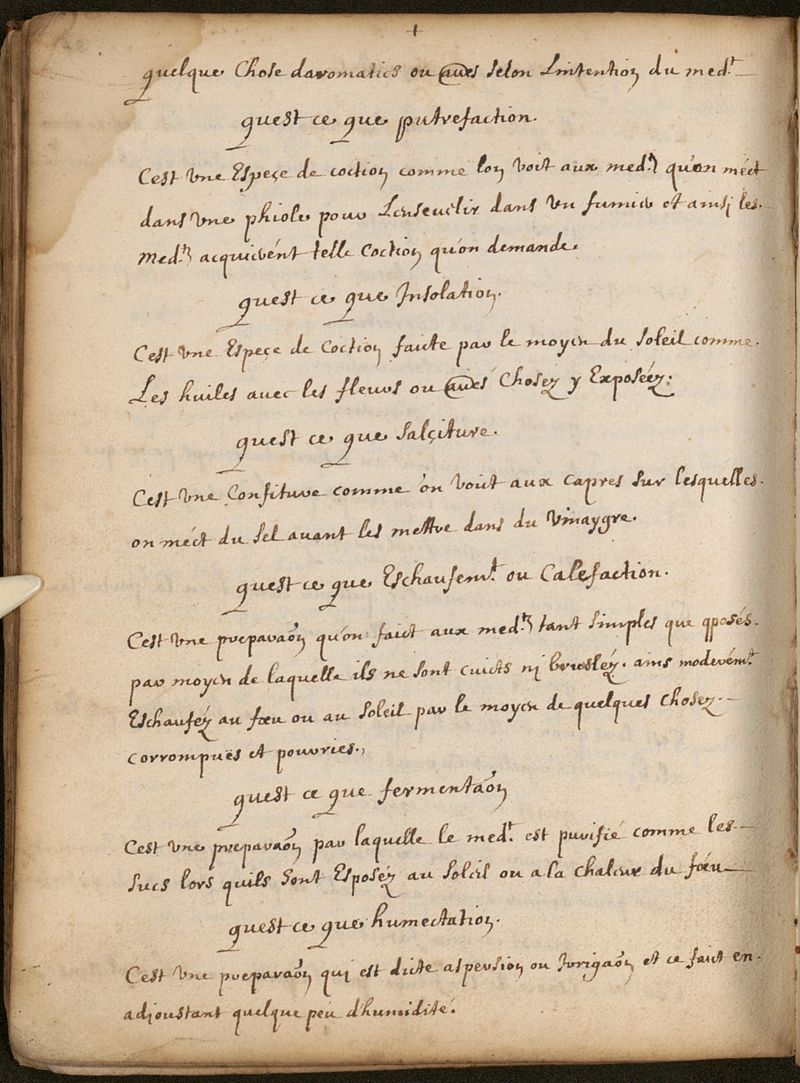 +
quelque Chose daromatics ou aud̃es selon Lintention du med.t
quest ce que putrefaction.
Cest vne Espeçe de coction comme lon voit aux med.ts qu'on méct
dans vne phiole pour Lenseuelir dans vn fumier et ainsj les
med.ts acquierént telle Coction qu'on demande.
quest ce que Insolation.
Cest vne Espeçe de Coction faicte par le moyen du Soleil comme
Les huiles auec les fleurs ou aud̃es Chosez y Exposéez:
quest ce que Salçiture.
Cest vne Confiture comme on voit aux Capres sur lesquelles
on méct du Sel auant les mettre dans du Vinaygre.
quest ce que Eschaufem.t ou Calefaction.
Cest vne preparaõn qu'on faict aux med.ts tant simples que qposés
par moyen de laquelle ils ne sont cuicts nj bruslez. ains moderém.t
Eschaufez au fœu ou au Soleil par le moyen de quelques Chosez
corrompuës et pourries.
quest ce que fermentaõn
Cest vne preparaõn par laquelle le med.t est purifié comme les
sucs lors quils sont Esposéz au Soleil ou a la chaleur du fœu
quest ce que humectation.
Cest vne preparaõn qui est dicte aspersion ou Irrigaõn et ce faict en
adjoustant quelque peu d'humidité.